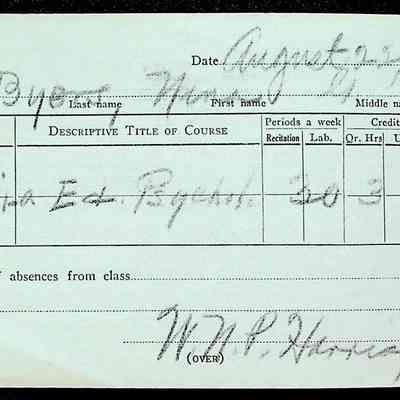 Date August 22,
Byers, Nina
Last name First name Middle n
Descriptive Title of Course Periods a week Credit
Recitation Lab. Qr. Hrs U
Ed. Psychol. 3 0 3
f absences from class
W. N. P.
(over)